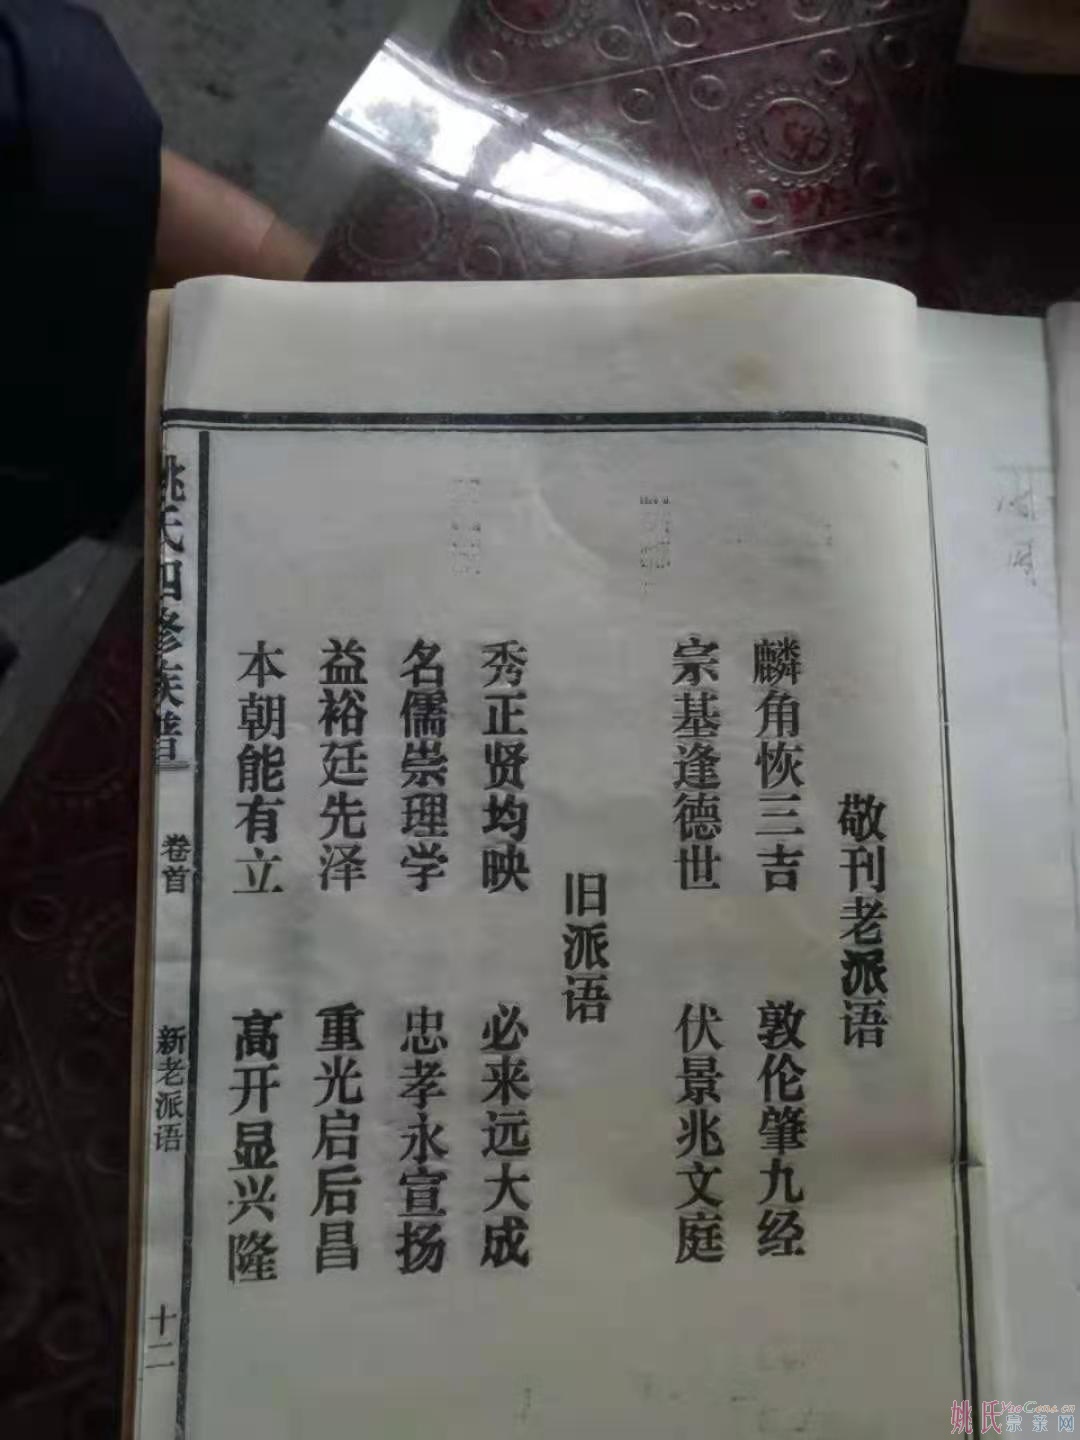 敬刊老派语
麟角恢三吉 敦伦肇九经
宗基逢德世 伏景兆文庭
旧派语
秀正贤均映 必来远大成
名儒崇理学 忠孝永宣扬
益裕廷先泽 重光启后昌
本朝能有立 高开显兴隆
姚氏四修族谱
卷首
新老派语
十二
姚氏 YaoGens.cn
宗亲网